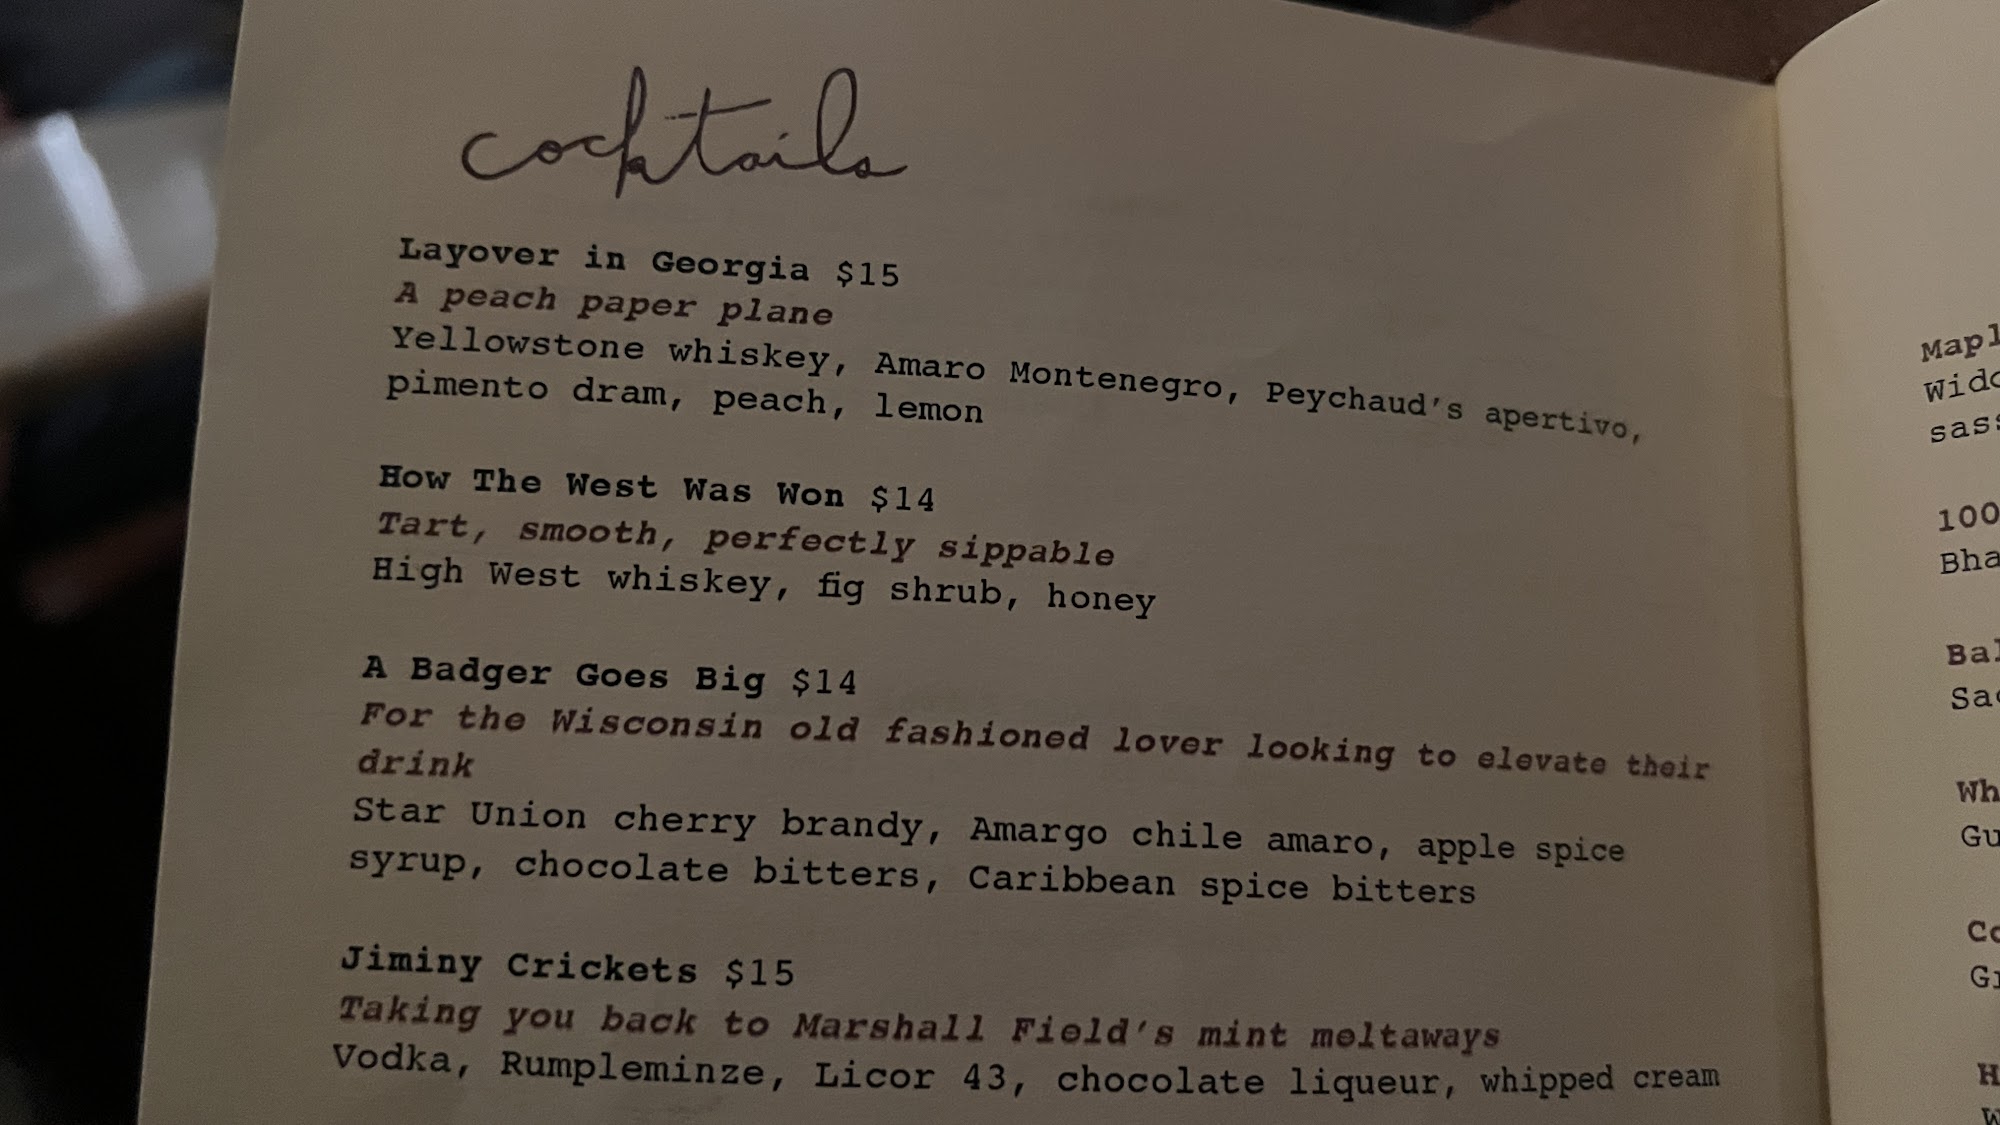 cocktails
Layover in Georgia $15
A peach paper plane
Yellowstone whiskey, Amaro Montenegro, Peychaud's apertivo,
pimento dram, peach, lemon
How The West Was Won $14
Tart, smooth, perfectly sippable
High West whiskey, fig shrub, honey
A Badger Goes Big $14
For the Wisconsin old fashioned lover looking to elevate their
drink
Star Union cherry brandy, Amargo chile amaro, apple spice
syrup, chocolate bitters, Caribbean spice bitters
Jiminy Crickets $15
Taking you back to Marshall Field's mint meltaways
Vodka, Rumpleminze, Licor 43, chocolate liqueur, whipped cream
100